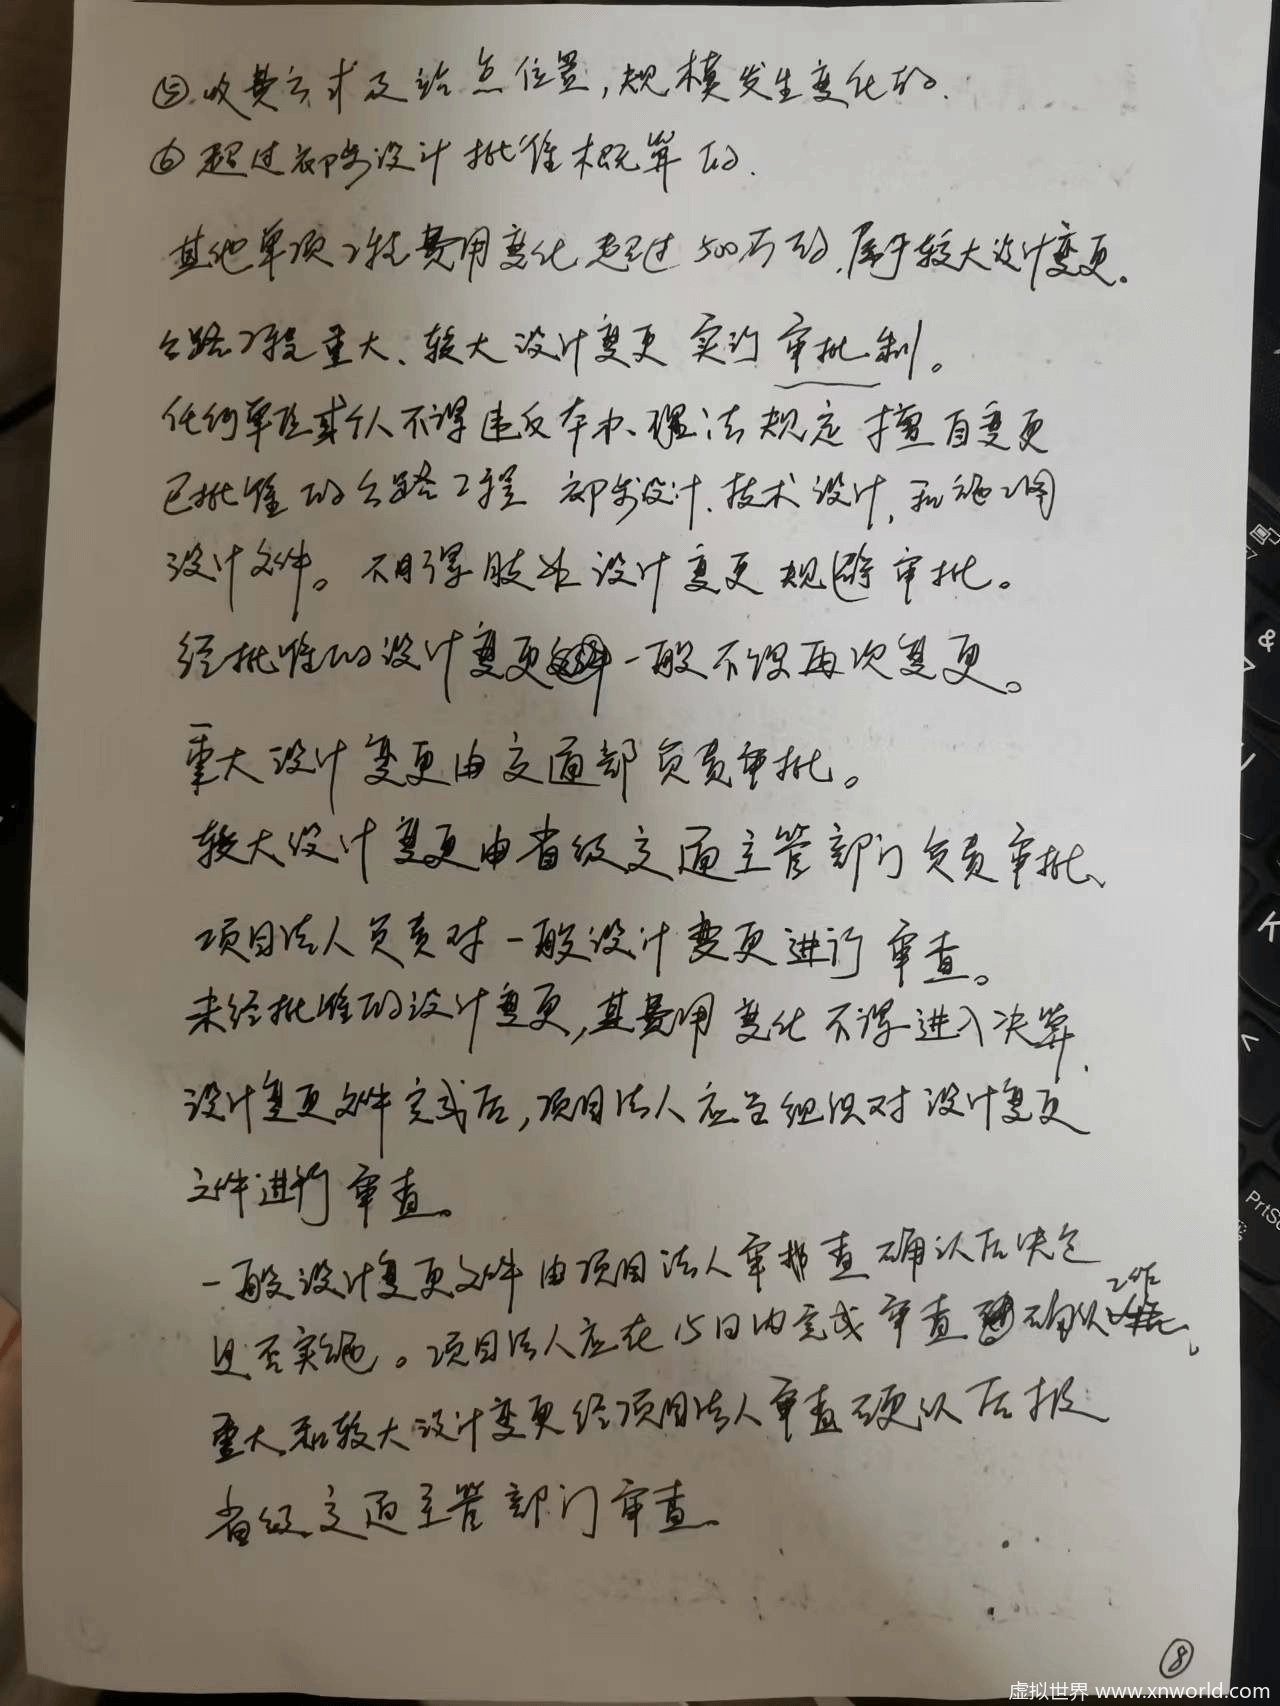 ⑤收费方式及站点位置,规模发生变化的.
⑥超过初步设计批准概算的.
其他单项工程费用变化超过500万的,属于较大设计变更。
公路工程重大、较大设计变更实行审批制。
任何单位或个人不得违反本办理法规定擅自变更
已批准的公路工程 初步设计、技术设计,和施工图
设计文件。不得肢解设计变更规避审批。
经批准的设计变更 一般不得再次变更。
重大设计变更由交通部负责审批。
较大设计变更由省级交通主管部门负责审批、
项目法人负责对一般设计变更进行审查。
未经批准的设计变更,其费用变化不得进入决算.
设计变更文件完成后,项目法人应当组织对设计变更
文件进行审查。
一般设计变更文件由项目法人审查确认后决定
是否实施。项目法人应在15日内完成审查确认工作、
重大和较大设计变更经项目法人审查确认后报
省级交通主管部门审查。
⑧
虚拟世界 www.xnworld.com
K
PrtSc
&